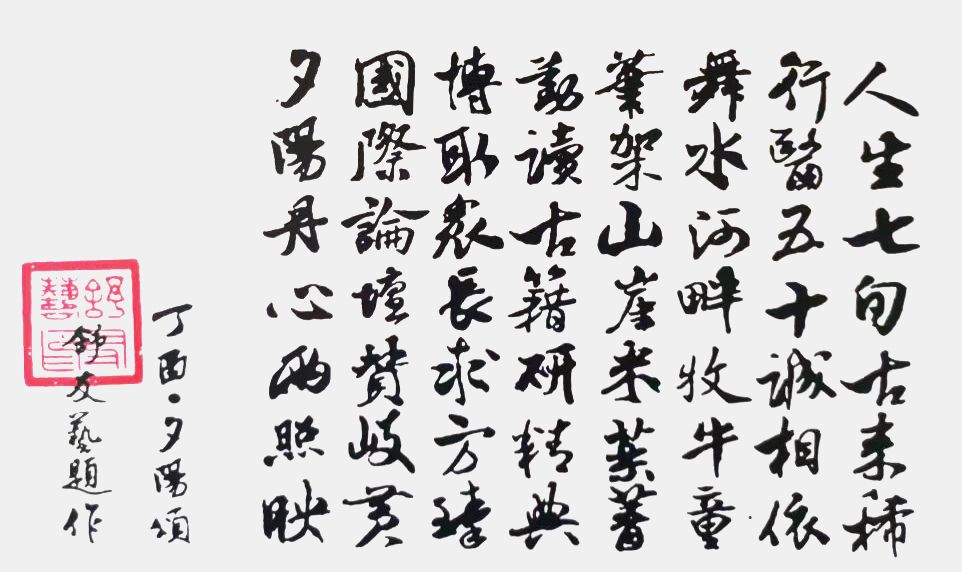 人生七旬古来稀
行醫五十誠相依
舞水河畔牧牛童
筆架山崖采葉
勤讀古籍研精典
博取衆長求方臻
國際論壇贊岐黄
夕陽丹心兩照映
丁酉·夕陽頌
舒友藝題作
舒友藝印